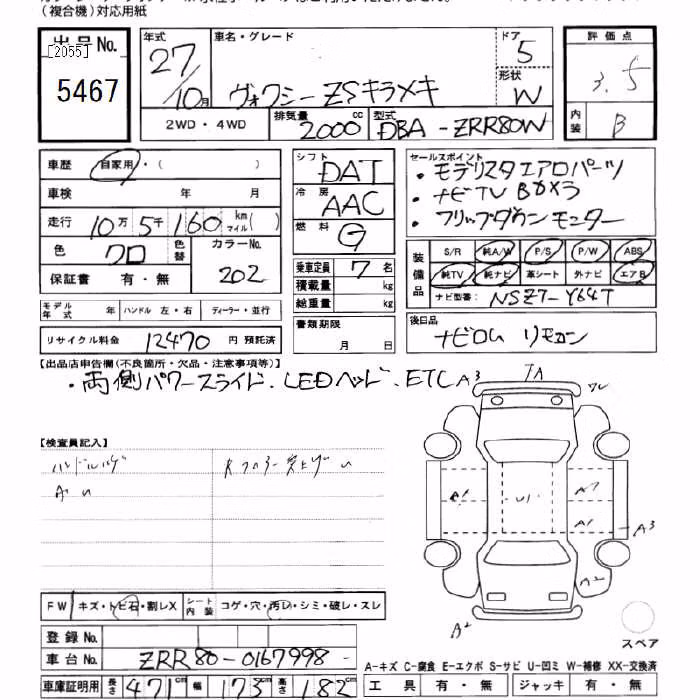 (複合機)対応用紙
出品No. [2055] 5467
年式 27/10月
車名・グレード ヴォクシー ZSキラメキ
ドア 5
形状 W
評価点 3.5
内装 B
2WD・4WD
排気量 2000 cc
型式 DBA-ZRR80W
車歴 自家用・( )
車検 年 月
走行 10万5千160 km マイル( )
色 クロ 色替 カラーNo. 202
保証書 有・無
モデル年式 年 ハンドル 左・右 ディーラー・並行
リサイクル料金 12470 円 預託済
シフト DAT
冷房 AAC
燃料 G
乗車定員 7 名
積載量 kg
総重量 kg
書類期限
月 日
セールスポイント
・モデリスタエアロパーツ
・ナビTV Bカメラ
・フリップダウンモニター
装備品 S/R 純A/W P/S P/W ABS
純TV 純ナビ 革シート 外ナビ エアB
ナビ型番: NSZT-Y64T
後日品
ナビロム リモコン
【出品店申告欄(不良箇所・欠品・注意事項等)】
・両側パワースライド.LEDヘッド.ETC
【検査員記入】
ハンドルハゲ
A U
FW キズ・トビ石・割レX シート内装 コゲ・穴・汚レ・シミ・破レ・スレ
登録No.
車台No. ZRR80-0167998-
車庫証明用 長さ 471cm 幅 173cm 高さ 182cm
A3
A1
U1
A1
A3
A2
A2
スペア
A-キズ C-腐食 E-エクボ S-サビ U-凹ミ W-補修 XX-交換済
工具 有・無 ジャッキ 有・無